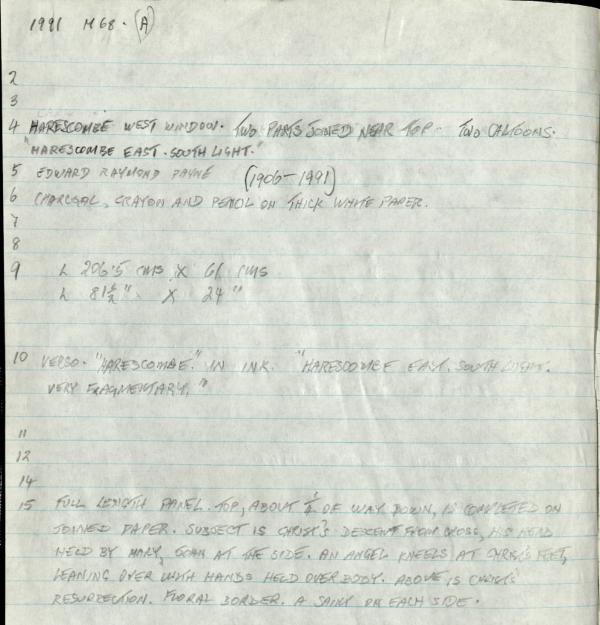 1991 H68. (A)
2
3
4 HARESCOMBE WEST WINDOW. TWO PARTS JOINED NEAR TOP - TWO CARTOONS.
"HARESCOMBE EAST. SOUTH LIGHT."
5 EDWARD RAYMOND PAYNE (1906-1991)
6 CHARCOAL, CRAYON AND PENCIL ON THICK WHITE PAPER.
7
8
9 L 206.5 CMS X 61 CMS
L 81½" X 24"
10 VERSO. "HARESCOMBE." IN INK. "HARESCOMBE EAST. SOUTH LIGHT.
VERY FRAGMENTARY."
11
12
14
15 FULL LENGTH PANEL. TOP, ABOUT ½ OF WAY DOWN, IS COMPLETED ON
JOINED PAPER. SUBJECT IS CHRIST'S DESCENT FROM CROSS, HIS HEAD
HELD BY MARY, JOHN AT THE SIDE. AN ANGEL KNEELS AT CHRIST'S FEET,
LEANING OVER WITH HANDS HELD OVER BODY. ABOVE IS CHRIST'S
RESURRECTION. FLORAL BORDER. A SAINT ON EACH SIDE.